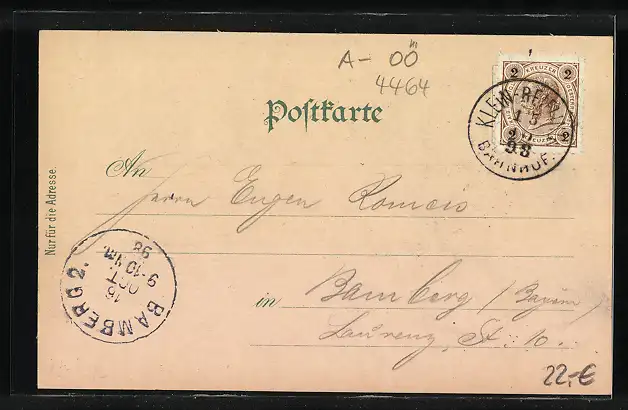 A- OÖ
4464
Postkarte
2 KREUZER 2
2 2
KLEIN-REIF
15
98
BAHNHOF.
An
Herrn Eugen Romeis
Nur für die Adresse.
BAMBERG 2.
16
OCT.
9-10 VM.
98
in Bamberg (Bayern)
Laurenz. St. 10.
22,-€